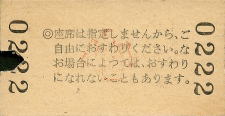 0222
◎座席は指定しませんから、ご
自由におすわりください。なお
お場合によつては、おすわり
になれないこともあります。
0222